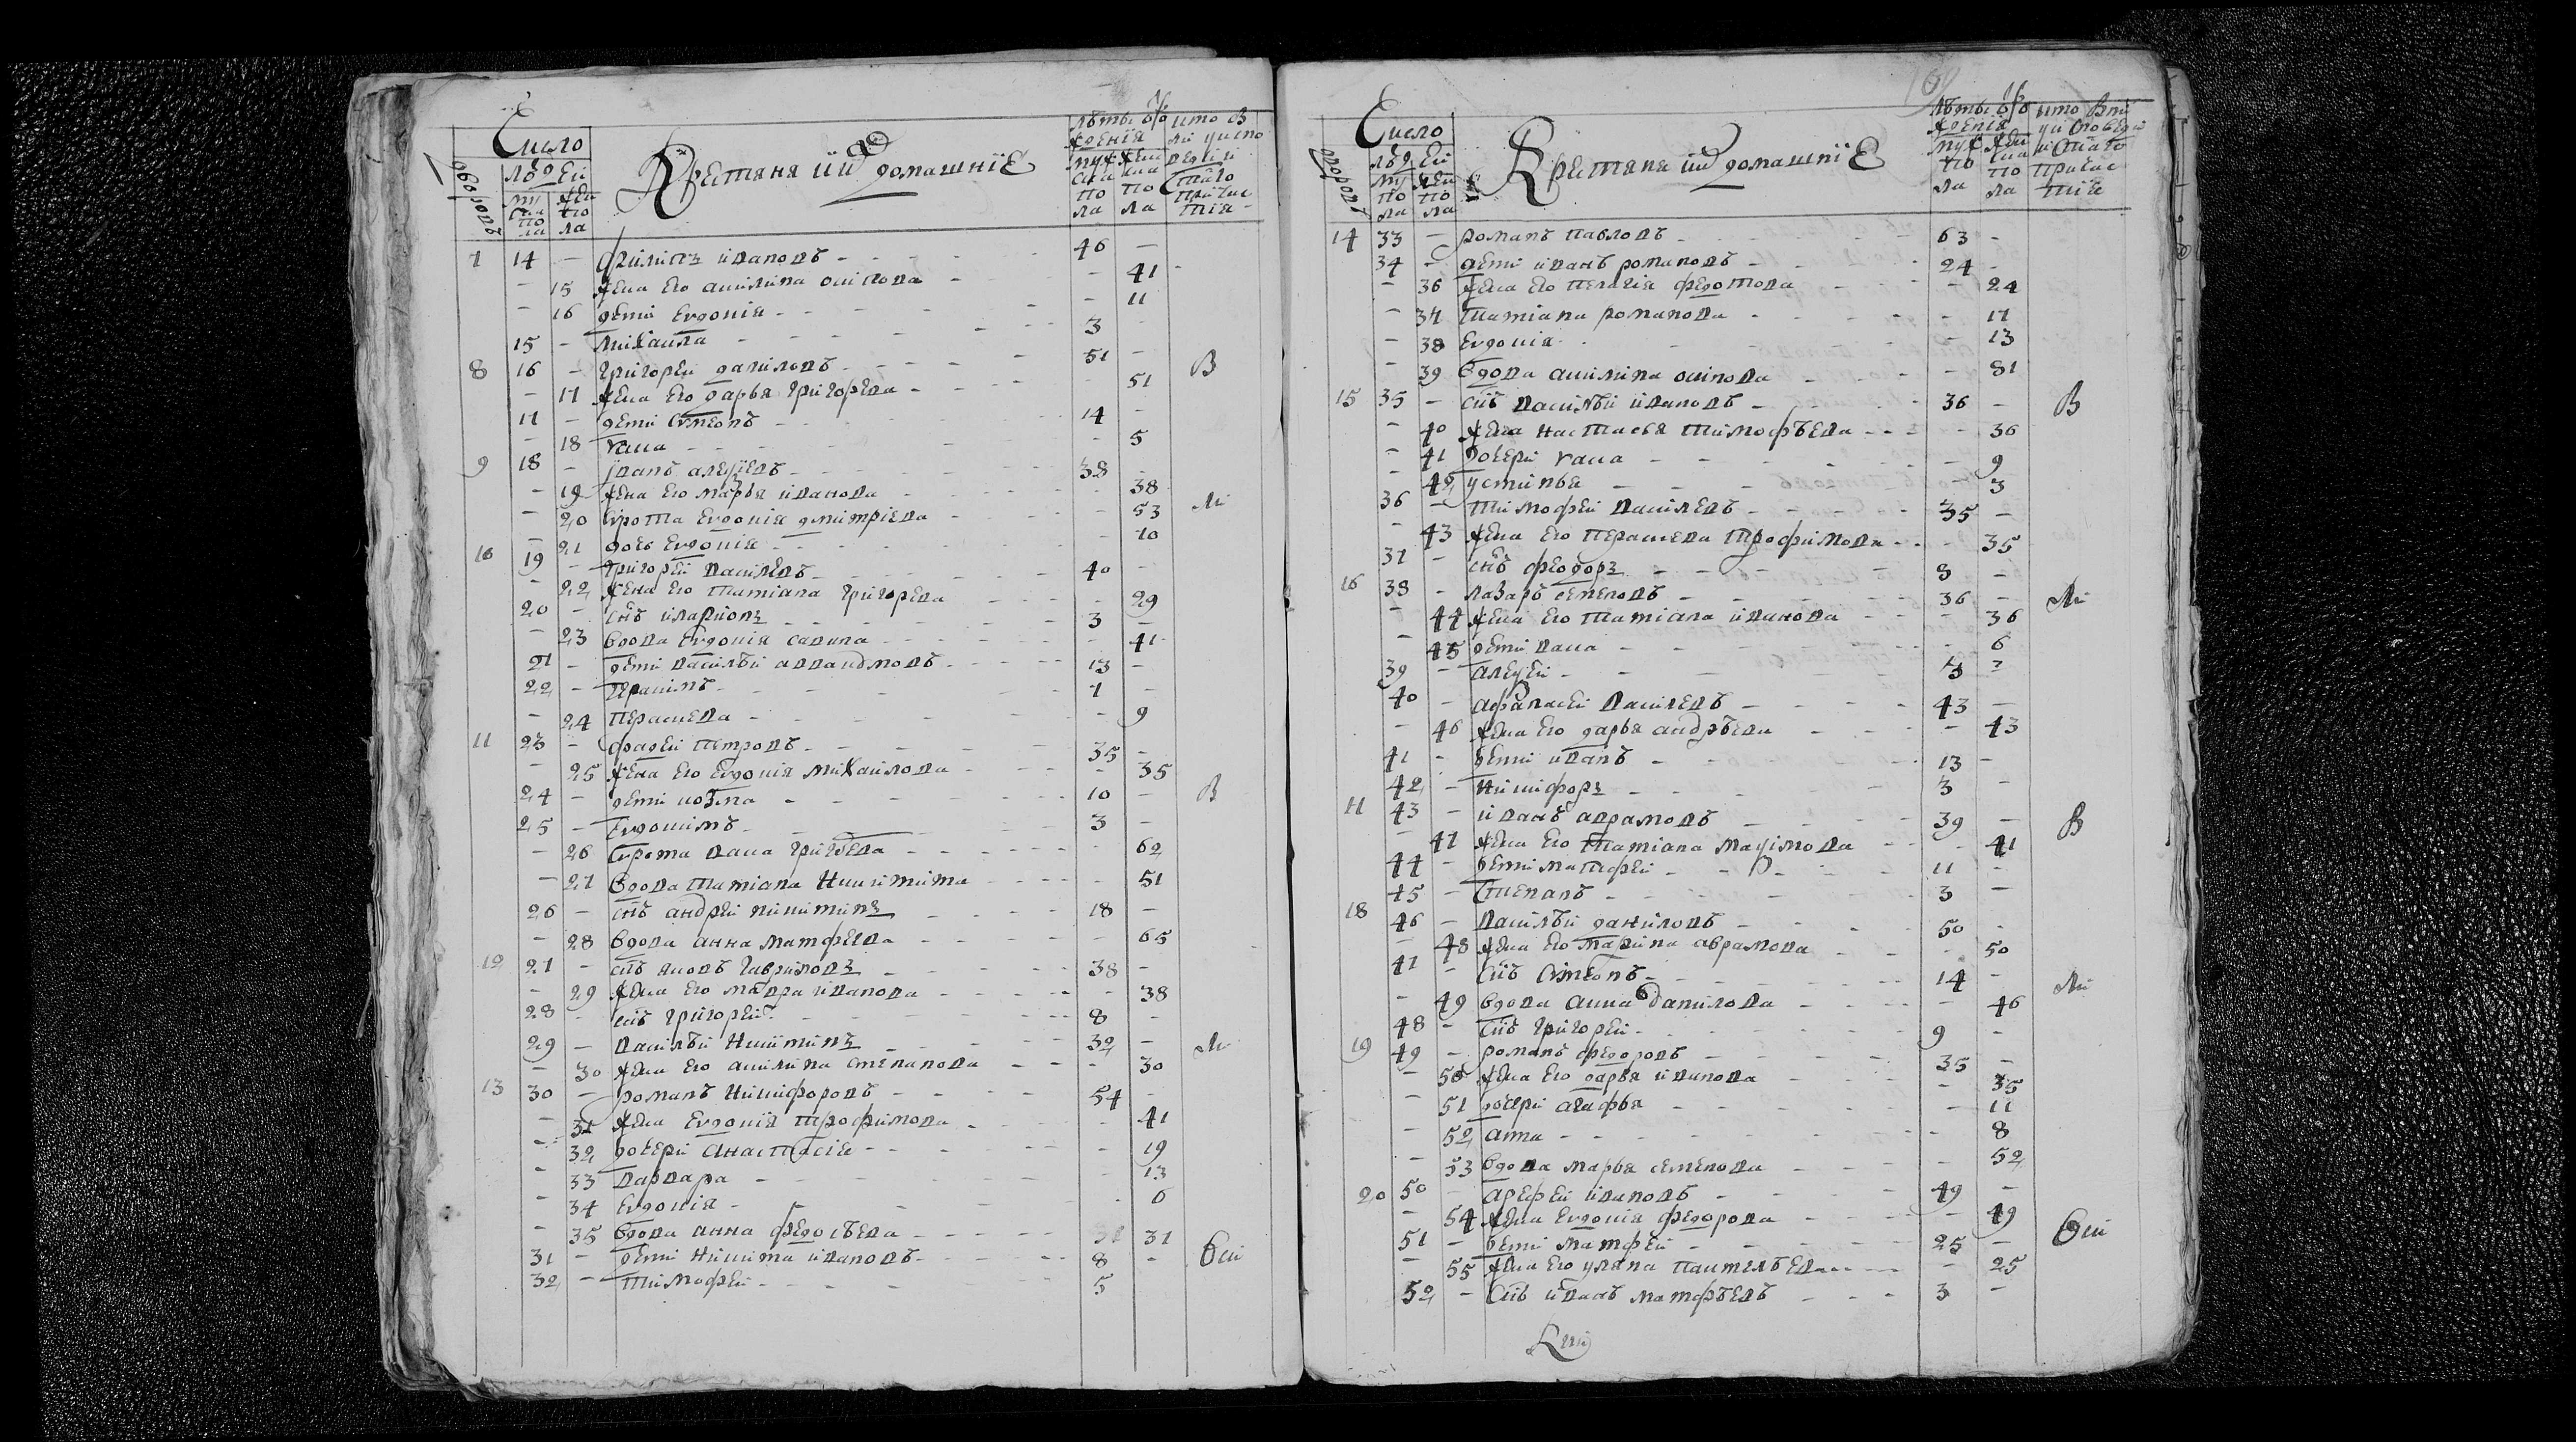 Число
Крестяня и их домашние
дворовъ
людеи
му
ска
по
ла
жен
по
ла
лѣты от
рождения
муж
ска
по
ла
жен
ска
по
ла
кто в
ли у испо
ведеи и
стаго
причас
тия
7 14 - филипъ ивановъ - 46 -
- 15 жена его акилина осипова - 41
- 16 дети евдокия - 11
15 - михаила - 3 -
8 16 - григореи даниловъ - 51 - В
- 17 жена его дарья григорева - 51
17 - дети симеонъ - 14 -
- 18 васа - 5
9 18 - иванъ алеѯеевъ - 38 -
- 19 жена его марья иванова - 38
- 20 сирота евдокия дмитриева - 53 Ли
- 21 дочь евдокия - 10
10 19 - григореи василевъ - 40 -
- 22 жена его татиана григорева - 29
20 - снъ иларионъ - 3 -
- 23 вдова евдокия савина - 41
21 - дети василѣи аввакумовъ - 13 -
22 - герасимъ - 7 -
- 24 парасцева - 9
11 23 - фадеи петровъ - 35 -
- 25 жена его евдокия михаилова - 35
24 - дети козма - 10 - В
25 - евдокимъ - 3 -
- 26 сирота васа - 62
- 27 вдова татиана никитина - 51
26 - снъ андреи никитинъ - 18 -
- 28 вдова анна матфеева - 65
12 27 - снъ яковъ гавриловъ - 38 -
- 29 жена его мавра иванова - 38
28 - снъ григореи - 8 -
29 - василѣи никитинъ - 32 - Ли
- 30 жена его акилина степанова - 30
13 30 - романъ никифоровъ - 54 -
- 31 жена евдокия трофимова - 41
- 32 дочери анастасия - 19
- 33 варвара - 13
- 34 евдокия - 6
- 35 вдова анна федосѣева - 31
31 - дети никита ивановъ - 8 -
32 - тимофеи - 5
Число
Крестяня и их домашние
дворовъ
людеи
му
по
ла
жен
по
ла
лѣты от
рождения
муж
по
ла
жен
ска
по
ла
кто в ли
у исповеди
и стаго
причас
тия
14 33 - романъ павловъ - 63 -
34 - дети иванъ романовъ - 24 -
- 36 жена его пелагия федотова - 24
- 37 татиана романова - 17
- 38 евдокия - 13
- 39 вдова акилина осипова - 81
15 35 - снъ василѣи ивановъ - 36 - В
- 40 жена настасья тимофѣева - 36
- 41 дочери васа - 9
- 42 устинья - 3
36 - тимофеи василевъ - 35 -
- 43 жена его парасцева трофимова - 35
37 - снъ феодоръ - 8 -
16 38 - лазаръ семеновъ - 36 - Ли
- 44 жена его татиана иванова - 36
- 45 дети васа - 6
39 - алеѯеи - 3
40 - афанасеи василевъ - 43 -
- 46 жена его дарья андрѣева - 43
41 - дети иванъ - 13 -
42 - никифоръ - 3 -
17 43 - иванъ аврамовъ - 39 - В
- 47 жена его татиана маѯимова - 41
44 - дети матфеи - 11 -
45 - степанъ - 3 -
18 46 - василѣи даниловъ - 50 -
- 48 жена его марина аврамова - 50
47 - снъ симеонъ - 14 - Ли
- 49 вдова анна данилова - 46
48 - снъ григореи - 9 -
19 49 - романъ федоровъ - 35 -
- 50 жена его дарья иванова - 35
- 51 дочери агафья - 11
- 52 анна - 8
- 53 вдова марья семенова - 52
20 50 - арефеи ивановъ - 49 -
- 54 жена евдокия федорова - 49
51 - дети матфеи - 25 -
- 55 жена его уляна пантелѣева - 25
52 - снъ иванъ матфѣевъ - 3 -